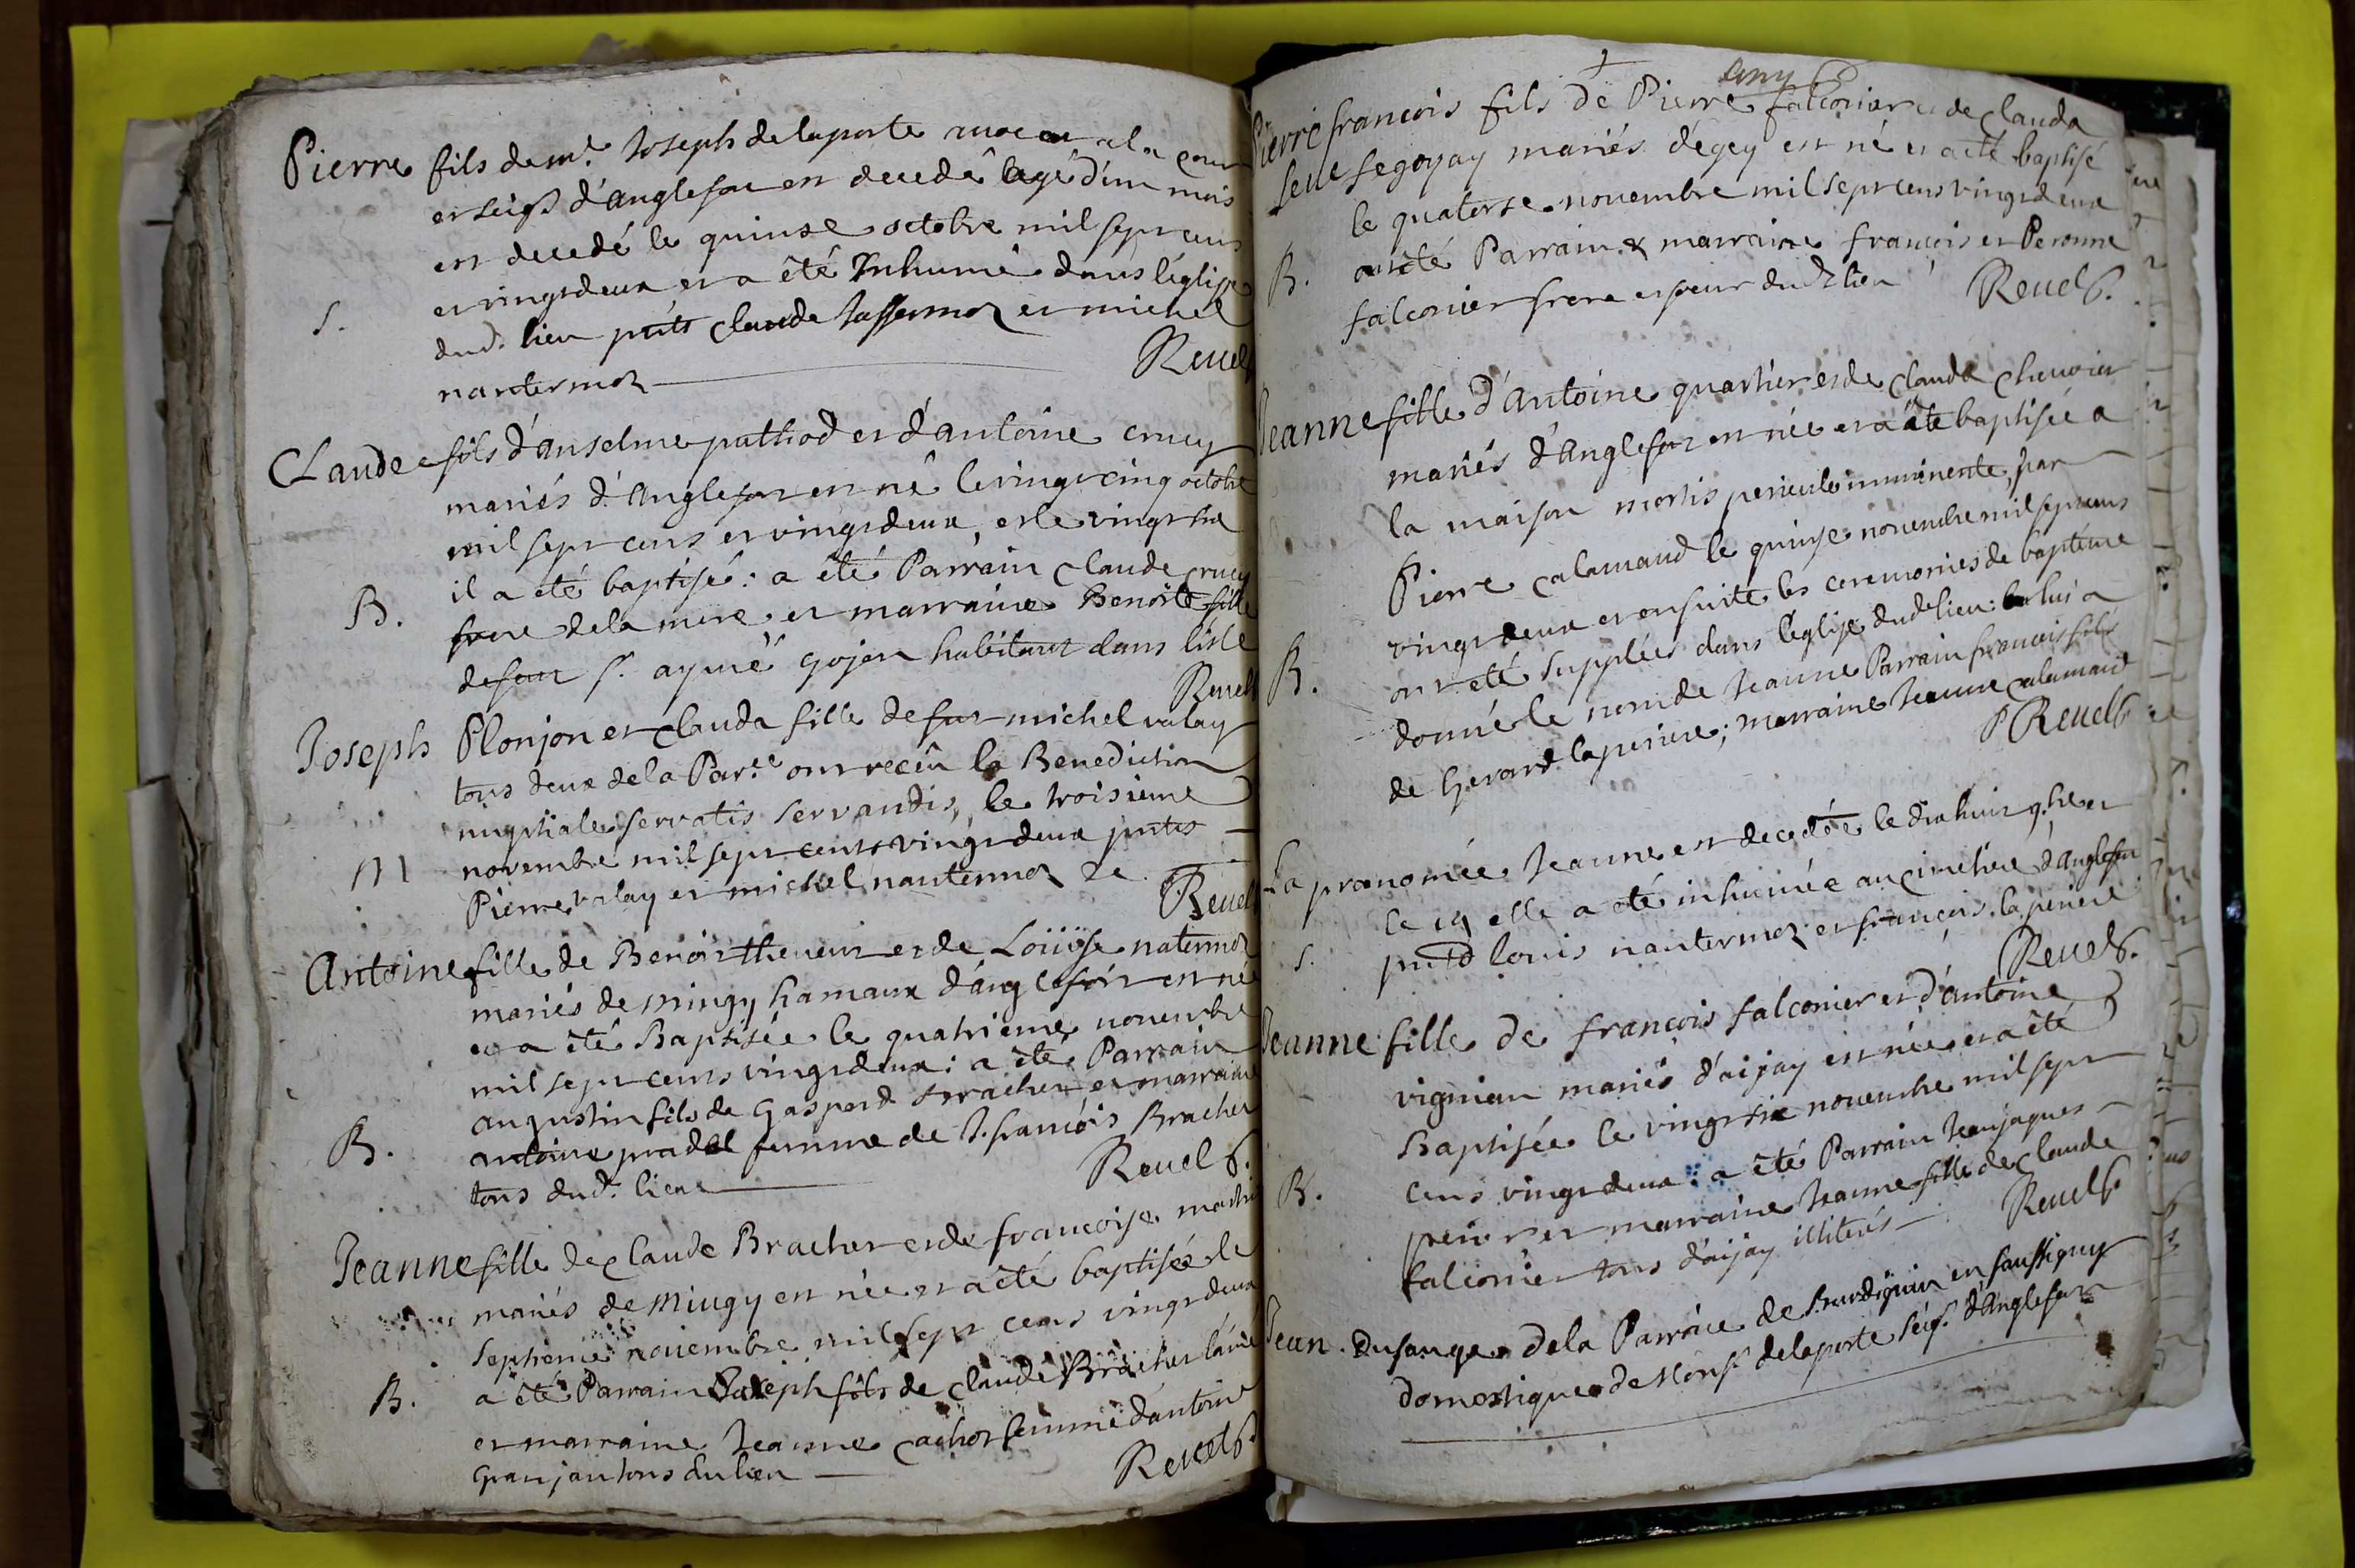 Pierre fils de mr. Joseph delaporte a la cour
et seigr d'anglefor est decedé agé d'un mois
est decedé le quinze octobre mil sept cens
et vingt deux et a été Inhumé dans l'eglise
S. dud. lieu pnts Claude et michel
nantermoz Revel
Claude fils d'anselme pathod et d'antoine crucy
mariés d'anglefor est né le vingt cinq octobre
mil sept cens et vingt deux, et le vingt six
B. il a eté baptisé: a été Parrain Claude Crucy
frere de la mere et marraine Benoite fille
defeu sr. aymé gojon habitant dans l'isle
Revel
Joseph Plonjon et Clauda fille de feu michel valay
tous deux de la Parse ont recêu la Benediction
nuptiale servatis servandis, le troisieme
M novembre mil sept cents vingt deux pntes
Pierre valay et michel nantermoz &c Revel
Antoine fille de Benoist thevenin et de Loüise natermoz
mariés de mingy hamaux d'anglefort est né
et a été Baptisée le quatrieme novembre
mil sept cens vingt deux: a été Parrain
augustin fils de Gaspard Brachet et marraine
B. antoine pradel femme de J. francois Brachet
tous dud. lieu Revel c.
Jeanne fille de Claude Brachet et de francoise
mariés de Mingy est née et a été baptisée le
septieme novembre mil sept cens vingt deux
B. a été Parrain Joseph fils de Claude Brachet l'ainé
et marraine Jeanne Cachot femme d'antoine
granjan tous du lieu Revel c.
any
Pierre francois fils de Pierre falconier et de Clauda
seve segoyay mariés d'égey est né et a eté baptisé
le quatorze novembre mil sept cens vingt deux
B. ont eté Parrain & marraine francois et Peronne
falconier frere et soeur dudt lieu Revel c.
Jeanne fille d'antoine quartier et de Clauda Chevrier
mariés d'Anglefor est née et a été baptisée a
la maison mortis periculo imminente, par
Pierre Calamand le quinze novembre mil sept cens
vingt deux et ensuite les ceremonies de bapteme
B. ont eté supplées dans l'eglise dudt lieu: lui a
donné le nom de Jeanne Parrain francois fils
de Gerard laperiere; marraine Jeanne Calamand
Revel c.
La prenomée Jeanne est decedée le dix huit 9bre et
le 19 elle a eté inhumée au cimetiere d'Anglefor
S. pnts louis nantermoz et françois laperiere
Revel c.
Jeanne fille de francois falconier et d'antoine
vignian mariés d'aijay est née et a été
Baptisée le vingt six novembre mil sept
B. cens vingt deux: a été Parrain Jeanjaques
et marraine Jeanne fille de Claude
falconier tous d'aijay illiterés Revel c.
Jean Dusange de la Parroice de en faussigny
domestique de Monsr. delaporte seigr. d'Anglefor